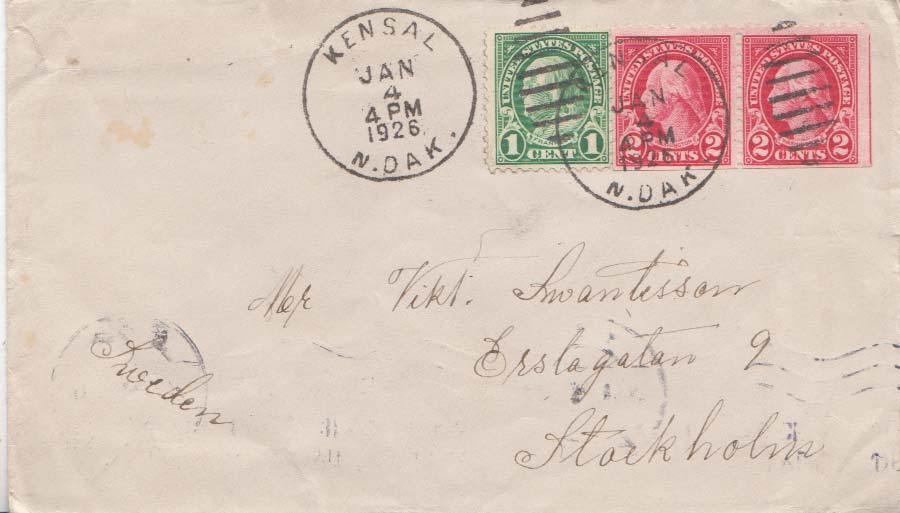 KENSAL
JAN
4
4 PM
1926
N. DAK.
UNITED STATES POSTAGE
1 CENT 1
UNITED STATES POSTAGE
2 CENTS 2
UNITED STATES POSTAGE
2 CENTS 2
JAN
4
4 PM
1926
N. DAK
Mr Vikt. Swantesson
Erstagatan 2
Stockholm
Sweden